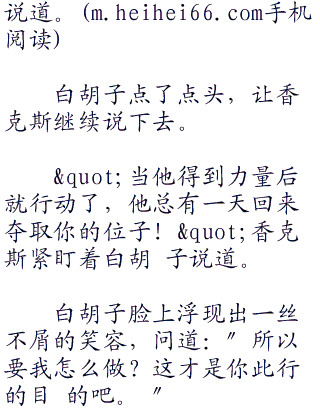 说道。(m.heihei66.com手机
阅读)
白胡子点了点头，让香
克斯继续说下去。
&quot;当他得到力量后
就行动了，他总有一天回来
夺取你的位子！&quot;香克
斯紧盯着白胡 子说道。
白胡子脸上浮现出一丝
不屑的笑容，问道：″所以
要我怎么做？这才是你此行
的目 的吧。 ″